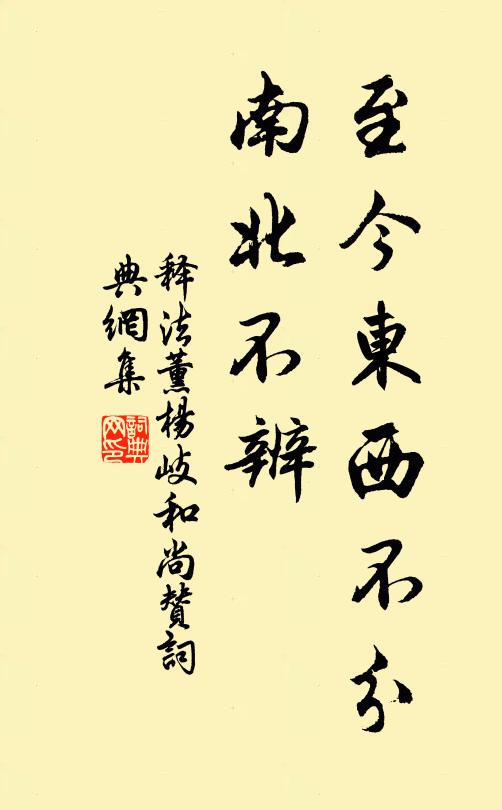 至今東西不分
南北不辨
释法薰楊岐和尚赞詞
典網集
詞典
网印